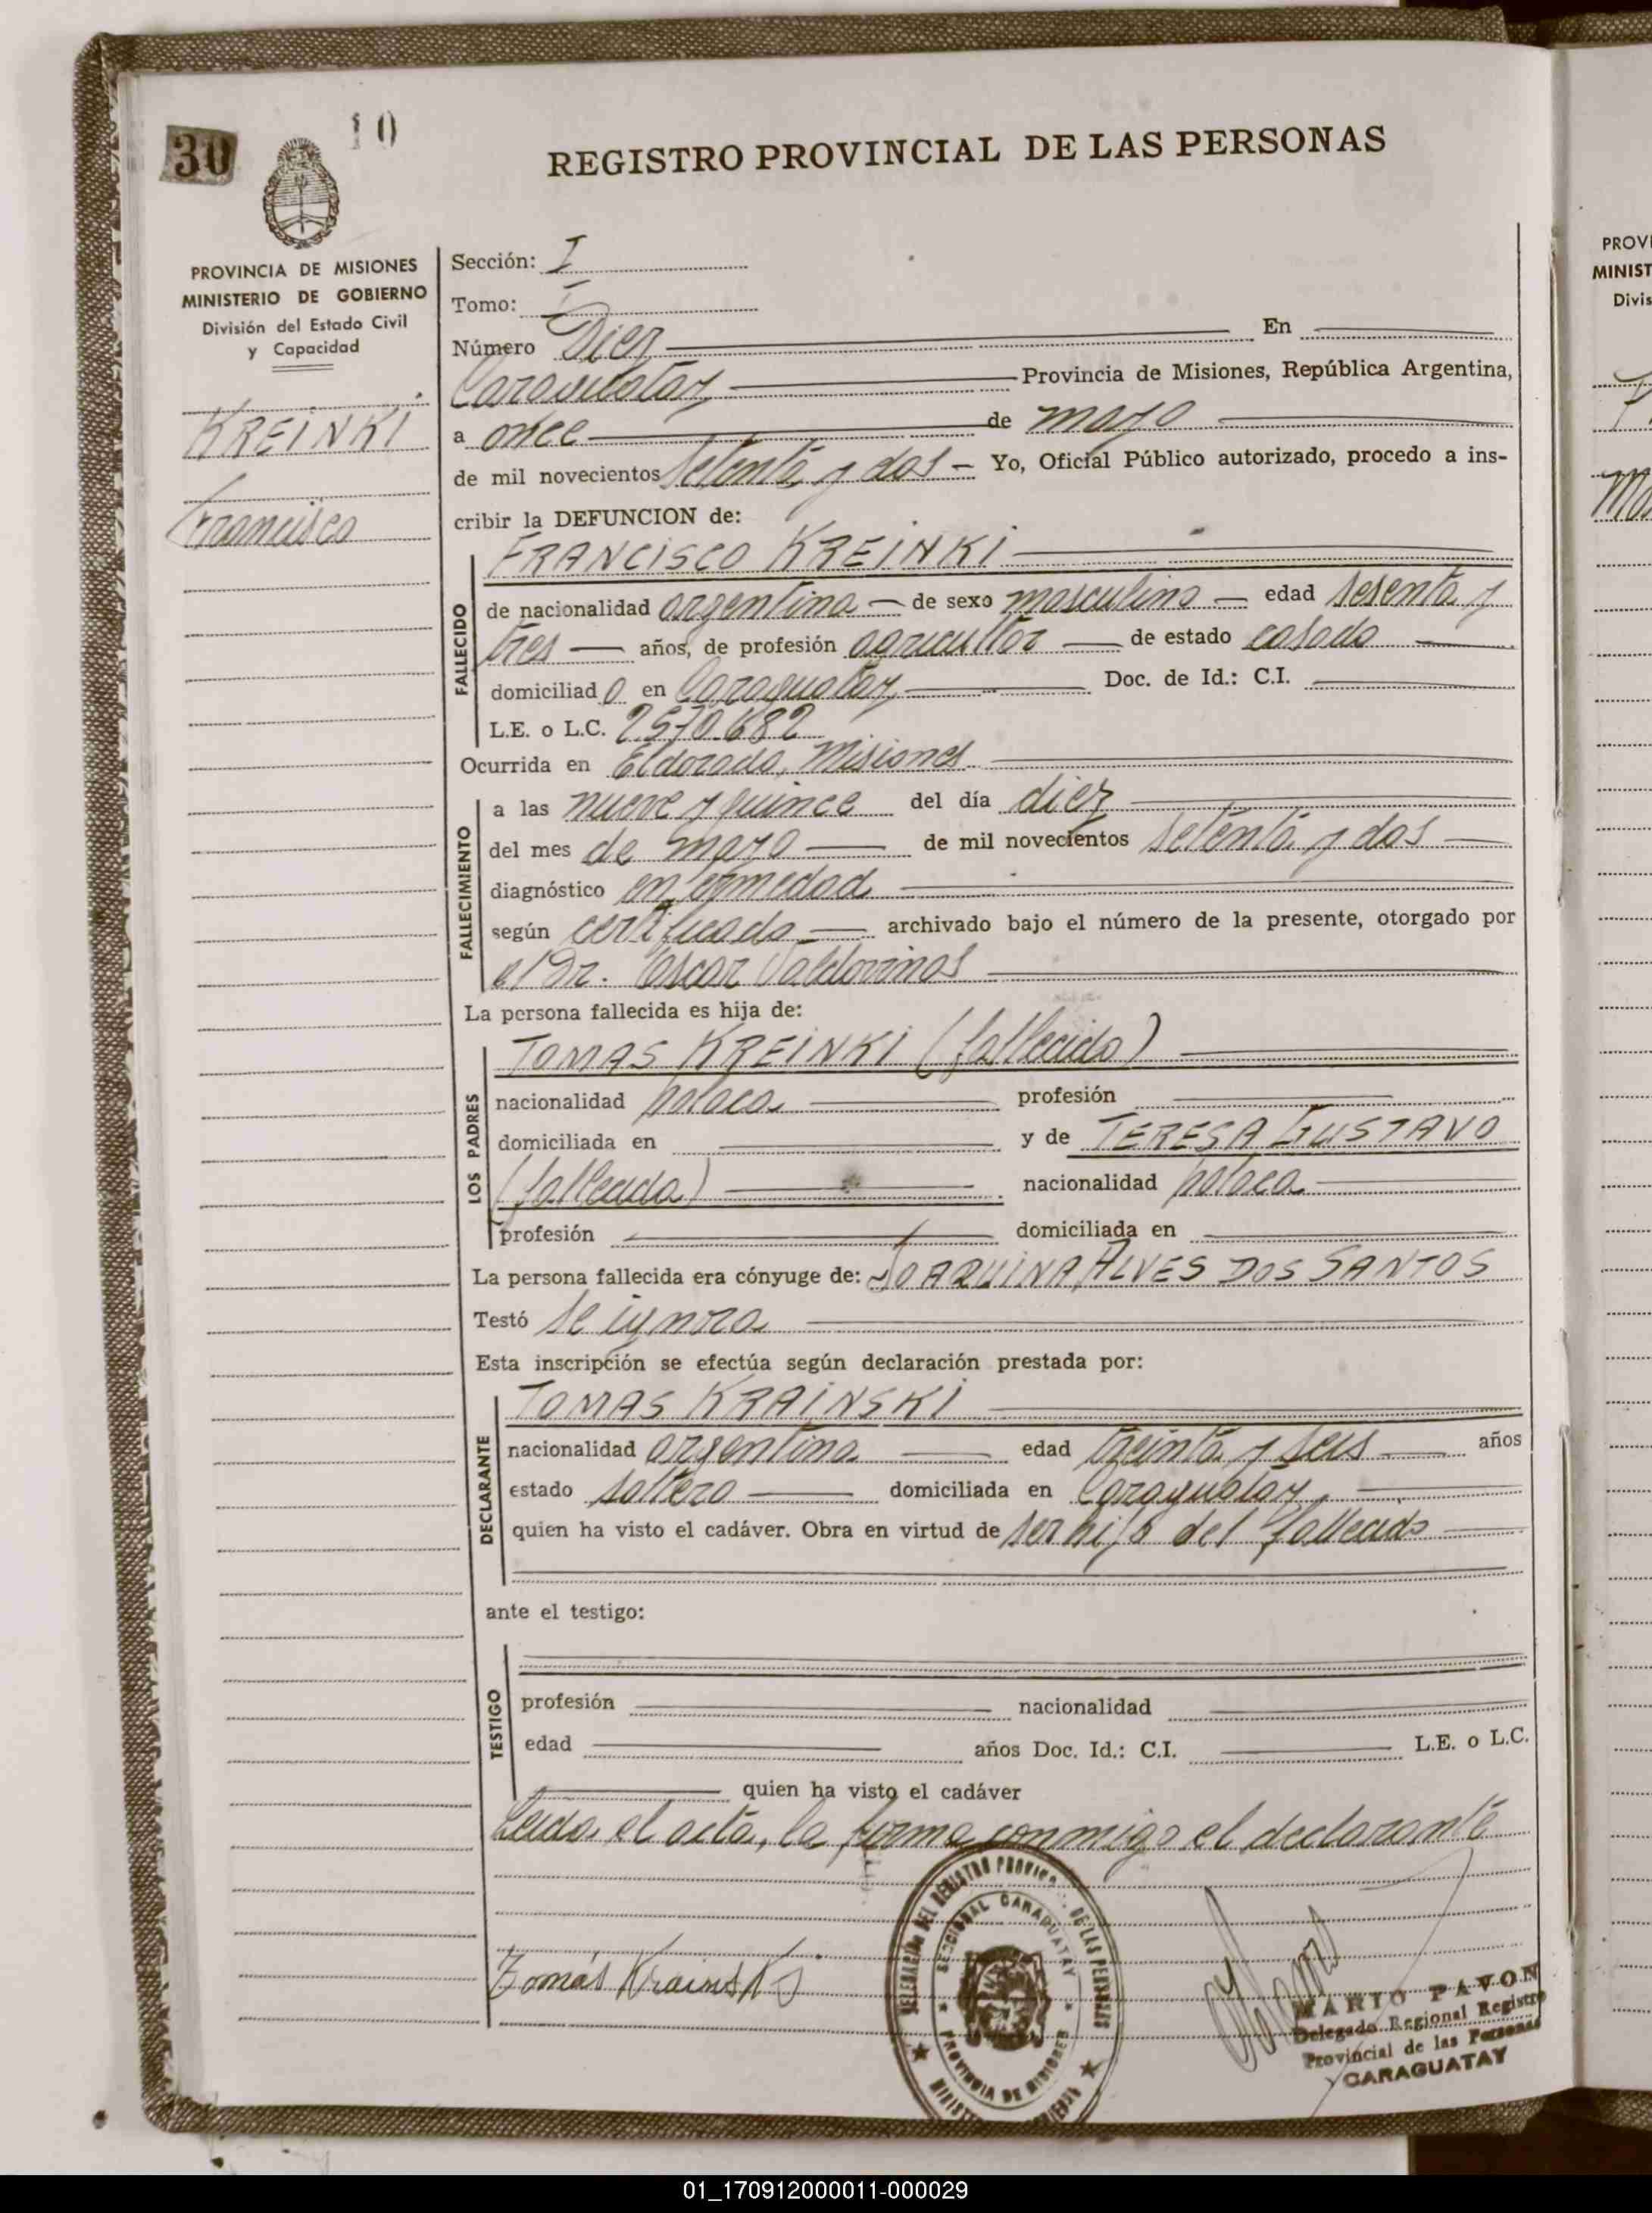 30
10
REGISTRO PROVINCIAL DE LAS PERSONAS
PROVINCIA DE MISIONES
MINISTERIO DE GOBIERNO
División del Estado Civil
y Capacidad
KREINKI
Francisco
Sección: I
Tomo: I
Número Diez En
Caraguatay Provincia de Misiones, República Argentina,
a once de mayo
de mil novecientos setenta y dos - Yo, Oficial Público autorizado, procedo a ins-
cribir la DEFUNCION de:
FALLECIDO
FRANCISCO KREINKI
de nacionalidad argentina de sexo masculino edad sesenta y
tres años, de profesión agricultor de estado casado
domiciliado en Caraguatay Doc. de Id.: C.I.
L.E. o L.C. 2570.682
Ocurrida en Eldorado, Misiones
FALLECIMIENTO
a las nueve y quince del día diez
del mes de mayo de mil novecientos setenta y dos
diagnóstico enfermedad
según certificado archivado bajo el número de la presente, otorgado por
el Dr. Oscar Valdovinos
La persona fallecida es hija de:
LOS PADRES
TOMAS KREINKI (fallecido)
nacionalidad polaca profesión
domiciliada en y de TERESA GUSTAVO
(fallecida) nacionalidad polaca
profesión domiciliada en
La persona fallecida era cónyuge de: JOAQUINA ALVES DOS SANTOS
Testó se ignora
Esta inscripción se efectúa según declaración prestada por:
DECLARANTE
TOMAS KRAINSKI
nacionalidad argentina edad treinta y seis años
estado soltero domiciliada en Caraguatay
quien ha visto el cadáver. Obra en virtud de ser hijo del fallecido
ante el testigo:
TESTIGO
profesión nacionalidad
edad años Doc. Id.: C.I. L.E. o L.C.
quien ha visto el cadáver
Leída el acta, la firma conmigo el declarante
Tomás Krainski
DELEGACIÓN DEL REGISTRO PROVINCIAL DE LAS PERSONAS
SECCIONAL CARAGUATAY
PROVINCIA DE MISIONES
MARIO PAVON
Delegado Regional Registro
Provincial de las Personas
CARAGUATAY
PROVI
MINIST
Divis
01_170912000011-000029